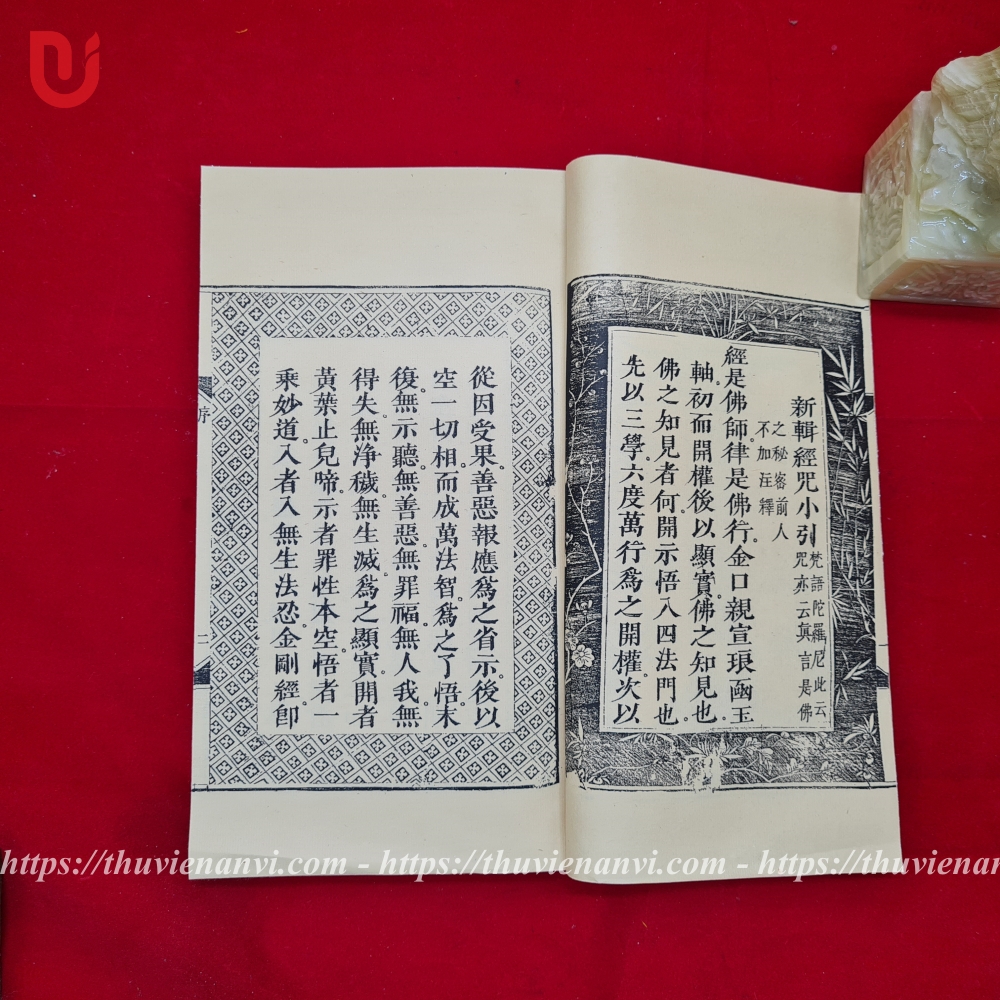 新輯經咒小引
梵語陀羅尼此云
咒亦云眞言是佛
之秘密前人
不加注釋
經是佛師。律是佛行。金口親宣。琅函玉
軸。初而開權。後以顯實。佛之知見也。
佛之知見者何。開示悟入四法門也。
先以三學。六度萬行。爲之開權。次以
從因受果。善惡報應。爲之省示。後以
空一切相。而成萬法智。爲之了悟。末
復無示聽。無善惡。無罪福。無人我。無
得失。無淨穢。無生滅。爲之顯實。開者
黃葉止兒啼。示者罪性本空。悟者一
乘妙道。入者入無生法忍。金剛經即
序
二
https://thuvienanvi.com - https://thuvienanvi.com - https://thuvienan